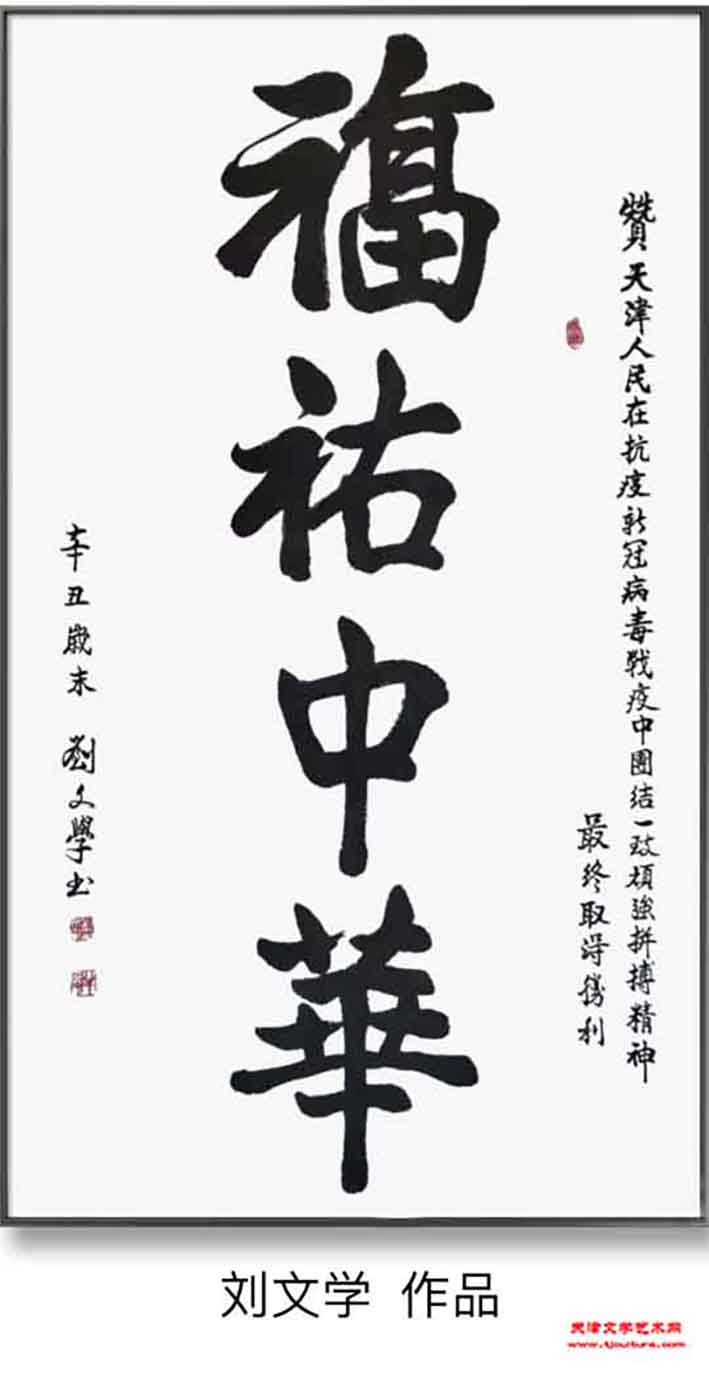 贊天津人民在抗疫新冠病毒戰疫中團结一致頑強拼搏精神
最终取得勝利
福祐中華
辛丑歲末 劉文學书
刘文学 作品
天津文学艺术网
www.tjculture.com